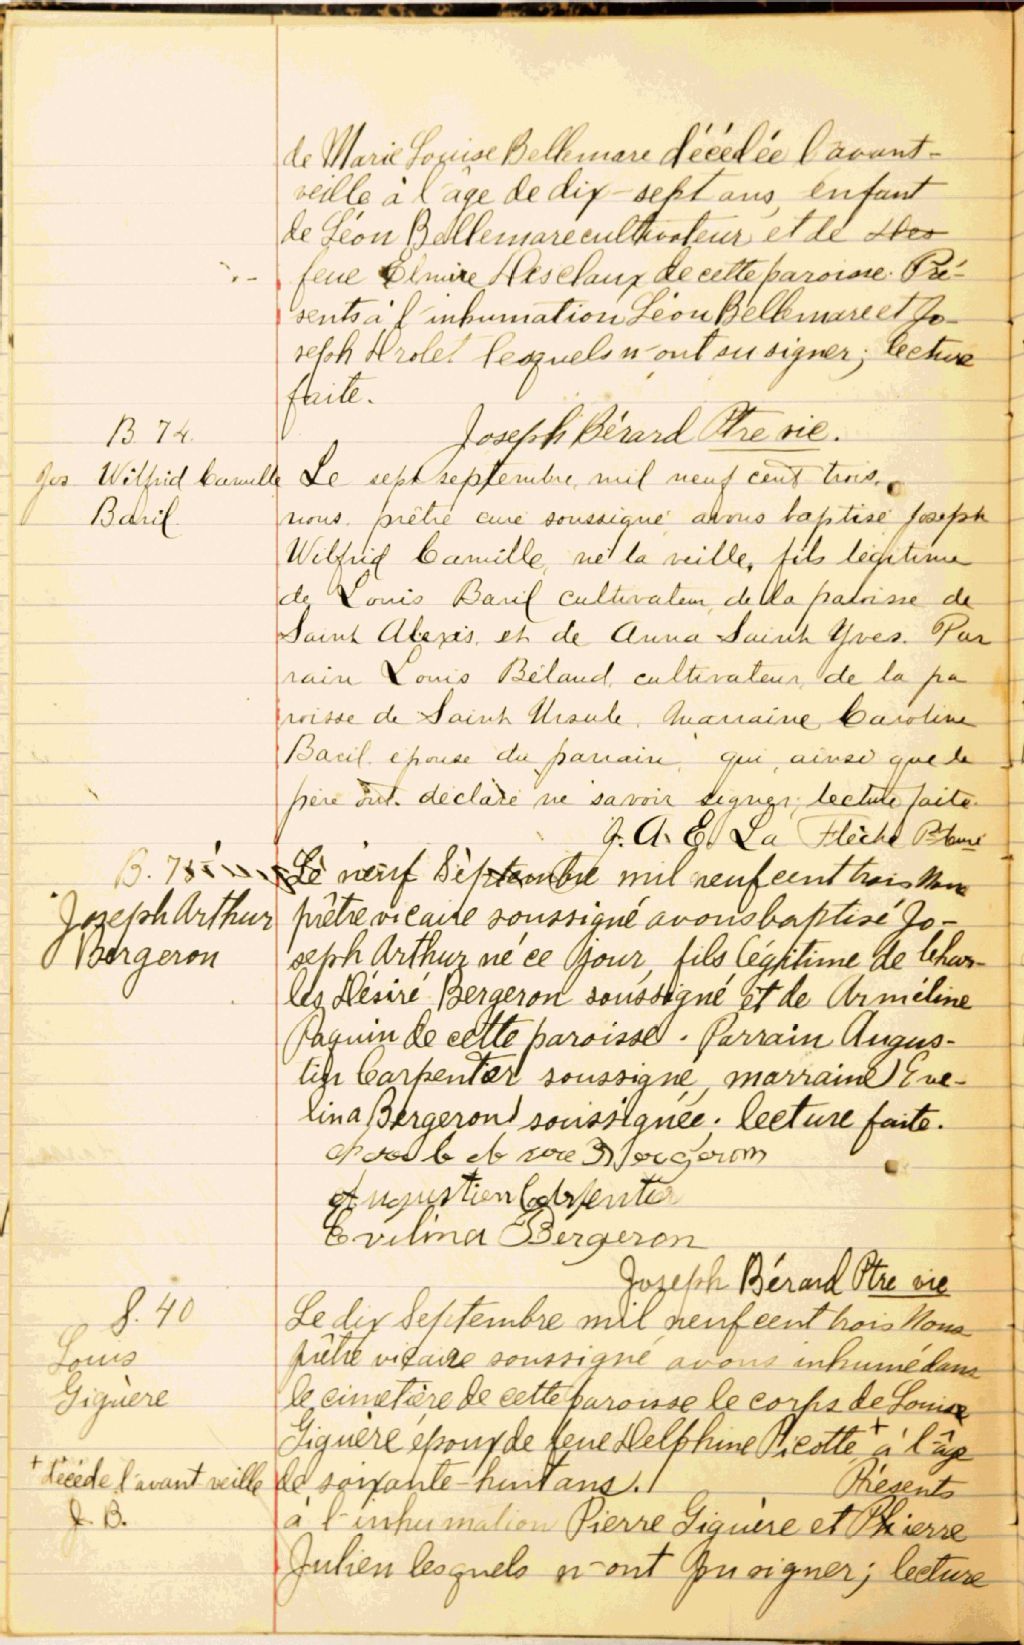 de Marie Louise Bellemare décédée l'avant-
veille à l'âge de dix-sept ans, enfant
de Léon Bellemare cultivateur et de Des
feue Elmire Desclaux de cette paroisse. Pré-
sents à l'inhumation Léon Bellemare et Jo-
seph Drolet lesquels n'ont su signer; lecture
faite.
Joseph Bérard Ptre vic.
B 74.
Jos Wilfrid Camille
Baril
Le sept septembre, mil neuf cent trois,
nous, prêtre curé soussigné avons baptisé Joseph
Wilfrid Camille, né la veille, fils légitime
de Louis Baril cultivateur, de la paroisse de
Saint Alexis, et de Anna Saint Yves. Par
rain Louis Béland, cultivateur, de la pa
roisse de Saint Ursule, marraine, Caroline
Baril, épouse du parrain, qui, ainsi que le
père ont déclaré ne savoir signer; lecture faite.
J. A. E. La Flèche Ptre curé
B. 75
Joseph Arthur
Bergeron
Le neuf Septembre mil neuf cent trois Nous
prêtre vicaire soussigné avons baptisé Jo-
seph Arthur né ce jour, fils légitime de Char-
les Désiré Bergeron soussigné et de Arméline
Paquin de cette paroisse. Parrain Augus-
tin Carpentier soussigné, marraine Eve-
lina Bergeron soussignée; lecture faite.
Bergeron
Augustien Carpentier
Evilina Bergeron
Joseph Bérard Ptre vic
S. 40
Louis
Giguère
+ décédé l'avant veille
J. B.
Le dix Septembre mil neuf cent trois Nous
prêtre vicaire soussigné avons inhumé dans
le cimetière de cette paroisse le corps de Louis
Giguère époux de feue Delphine Picotte + à l'âge
de soixante-huit ans. Présents
à l'inhumation Pierre Giguère et Pierre
Julien lesquels n'ont pu signer; lecture